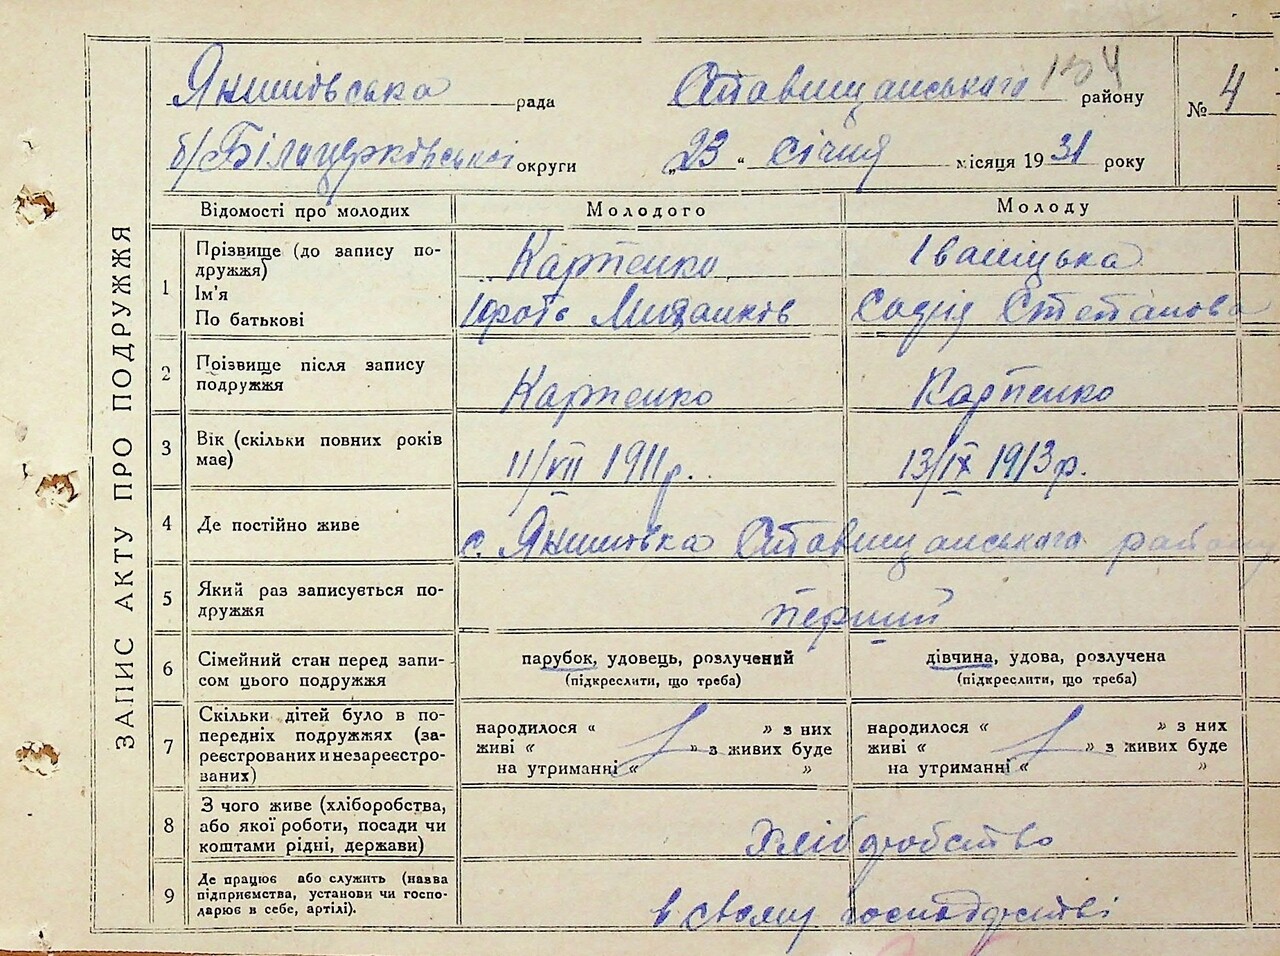 ЗАПИС АКТУ ПРО ПОДРУЖЖЯ
Янишівська рада Ставищанського району № 4
б/Білацерківської округи „23 “ січня місяця 1931 року
Відомості про молодих Молодого Молоду
1 Прізвище (до запису по-
дружжя) Карпенко Іваніцька
Ім'я
По батькові Степанова
2 Прізвище після запису
подружжя Карпенко Карпенко
3 Вік (скільки повних років
має) 11/VII 1911 р. 13/IX 1913 р.
4 Де постійно живе с. Янишівка Ставищанського району
5 Який раз записується по-
дружжя перший
6 Сімейний стан перед запи-
сом цього подружжя парубок, удовець, розлучений дівчина, удова, розлучена
(підкреслити, що треба) (підкреслити, що треба)
7 Скільки дітей було в по-
передніх подружжях (за-
реєстрованих и незареєстро-
ваних) народилося “ ” з них народилося “ ” з них
живі “ ” з живих буде живі “ ” з живих буде
на утриманні “ ” на утриманні “ ”
8 З чого живе (хліборобства,
або якої роботи, посади чи
коштами рідні, держави) Хліборобство
9 Де працює або служить (назва
підприємства, установи чи госпо-
дарює в себе, артілі). в свому господарстві